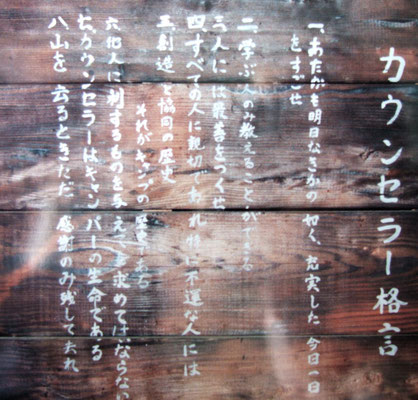 カウンセラー格言
一、あたかも明日なきかの如く、充実した今日一日
をすごせ
二、学ぶ人のみ教えることができる
三、人には最善をつくせ
四、すべての人に親切であれ特に不運な人には
五、創造と協同の歴史
それがキャンプの歴史である
六、他人に利するものを与えて、求めてはならない
七、カウンセラーはキャンパーの生命である
八、山を去るときただ感謝のみ残して去れ